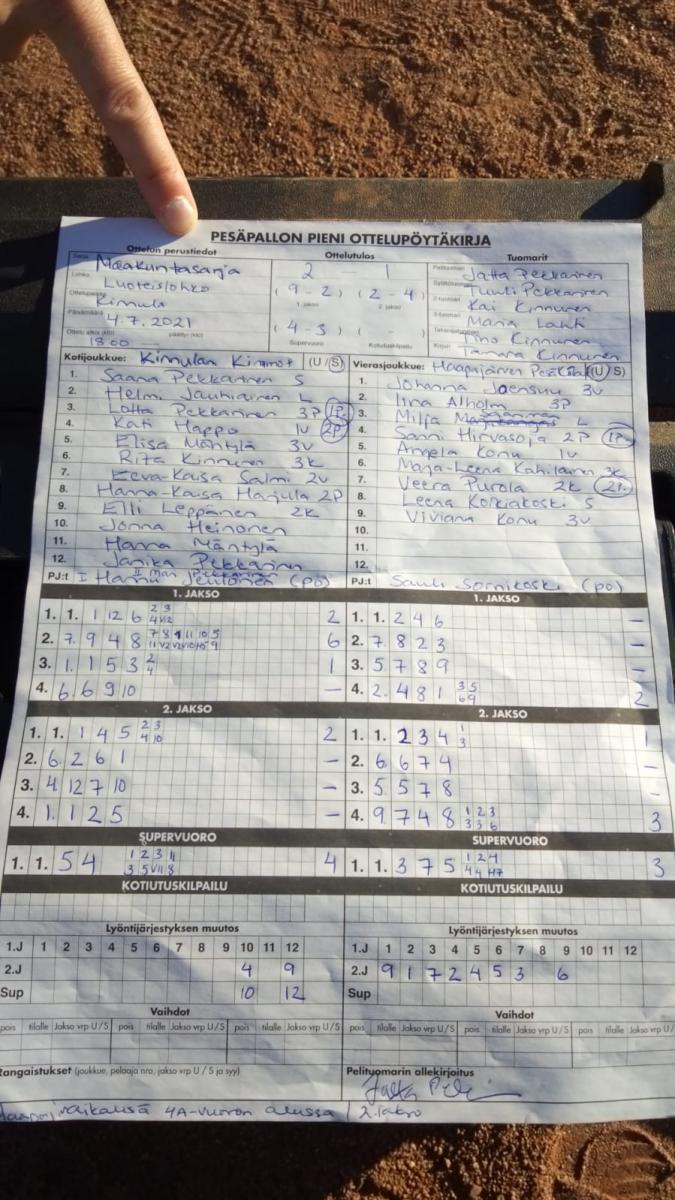 PESÄPALLON PIENI OTTELUPÖYTÄKIRJA
Ottelun perustiedot Ottelutulos Tuomarit
Sarja Maakuntasarja 2 1 Pelituomari Jatta Pekkarinen
Lohko Luoteislohko (9 - 2) (2 - 4) Syöttötuomari Tuuli Pekkarinen
Ottelupaikka Kinnula 1. jakso 2. jakso 2-tuomari Kai Kinnunen
Päivämäärä 4.7.2021 (4 - 3) ( - ) 3-tuomari Maria Lahti
Ottelu alkoi (klo) päättyi (klo) Supervuoro Kotiutuskilpailu Takarajatuomari Tino Kinnunen
18.00 Kirjuri Tamara Kinnunen
Kotijoukkue: Kinnulan Kimmot (U/S) Vierasjoukkue: Haapajärven (U/S)
1. Saana Pekkarinen S 1. Johanna Joensuu 3v
2. Helmi Jauhiainen L 2. Iina Alholm 3P
3. Lotta Pekkarinen 3P 1P. 3. Milja L
4. Kati Happo 1v 2P 4. Sanni Hirvasoja 2P 1P.
5. Elisa Mäntylä 3v 5. Angela Konu 1v
6. Rita Kinnunen 3k 6. Marja-Leena Kahilainen 3k
7. Eeva-Kaisa Salmi 2v 7. Veera Purola 2k 2P.
8. Hanna-Kaisa Harjula 2P 8. Leena Korkiakoski S
9. Elli Leppänen 2k 9. Viviana Konu 3v
10. Jonna Heinonen 10.
11. Hanna Mäntylä 11.
12. Janika Pekkarinen 12.
PJ:t I Hannu (PO) PJ:t Sauli Sornikoski (PO)
1. JAKSO 1. JAKSO
1. 1. 1 12 6 2 3 2 1. 1. 2 4 6 –
4 V12
2. 7. 9 4 8 6 2. 7. 8 2 3 –
3. 1. 1 5 3 2 1 3. 5 7 8 9 –
4
4. 6. 6 9 10 – 4. 2. 4 8 1 3 5 2
6 9
2. JAKSO 2. JAKSO
1. 1. 1 4 5 2 3 2 1. 1. 2 3 4 1 1
4 10 3
2. 6. 2 6 1 – 2. 6. 6 7 4 –
3. 4 12 7 10 – 3. 5. 5 7 8 –
4. 1. 1 2 5 – 4. 9. 7 4 8 1 2 3 3
3 3 6
SUPERVUORO SUPERVUORO
1. 1. 5 4 1 2 3 11 4 1. 1. 3 7 5 1 2 4 3
3 5 V11 8
KOTIUTUSKILPAILU KOTIUTUSKILPAILU
Lyöntijärjestyksen muutos Lyöntijärjestyksen muutos
1.J 1 2 3 4 5 6 7 8 9 10 11 12 1.J 1 2 3 4 5 6 7 8 9 10 11 12
2.J 4 9 2.J 9 1 7 2 4 5 3 6
Sup 10 12 Sup
Vaihdot Vaihdot
pois tilalle Jakso vrp U/S pois tilalle Jakso vrp U/S pois tilalle Jakso vrp U/S pois tilalle Jakso vrp U/S pois tilalle Jakso vrp U/S pois tilalle Jakso vrp U/
Rangaistukset (joukkue, pelaaja nro, jakso vrp U / S ja syy) Pelituomarin allekirjoitus
4A-vuoron alussa / 2. jakso